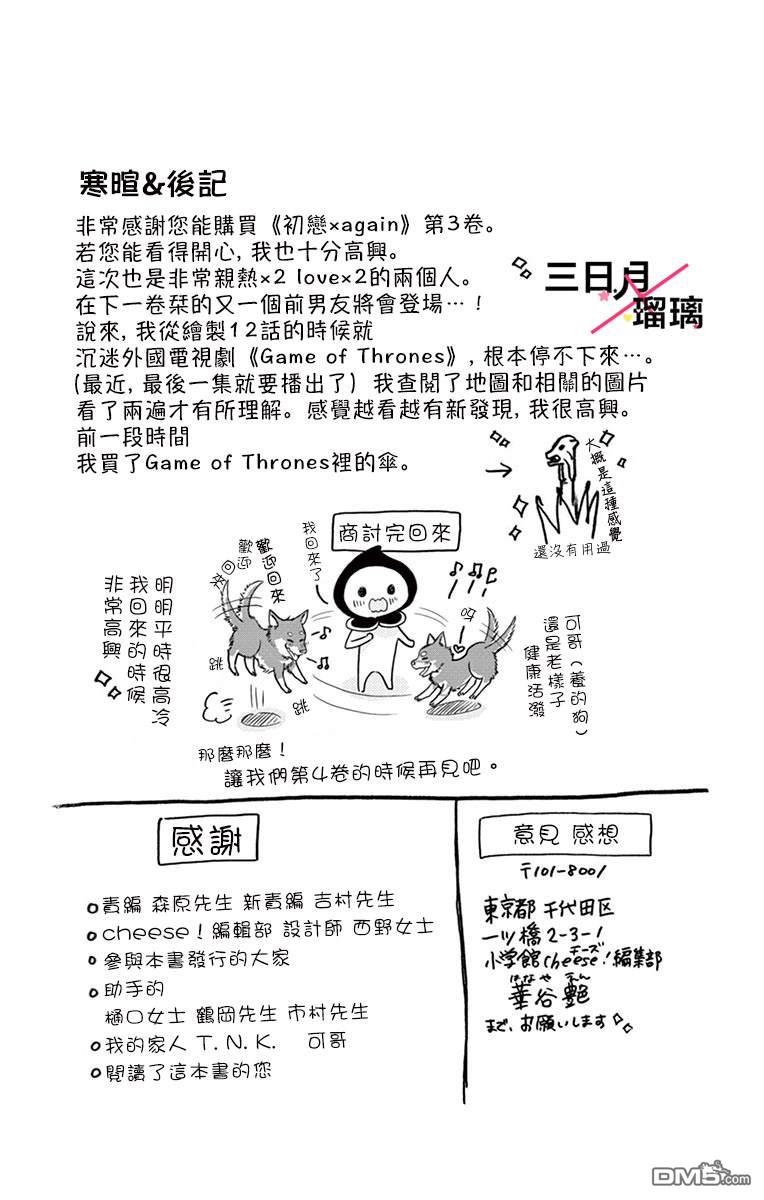 寒暄&後記
非常感謝您能購買《初戀×again》第3卷。
若您能看得開心,我也十分高興。
這次也是非常親熱×2 love×2的兩個人。
在下一卷栞的又一個前男友將會登場…！
說來,我從繪製12話的時候就
沉迷外國電視劇《Game of Thrones》,根本停不下來…。
(最近,最後一集就要播出了) 我查閱了地圖和相關的圖片
看了兩遍才有所理解。感覺越看越有新發現,我很高興。
前一段時間
我買了Game of Thrones裡的傘。
三日月
瑠璃
大概是這種感覺
還沒有用過
商討完回來
我回來了
歡迎回來
歡迎
明明平時很高冷
我回來的時候
非常高興
跳
跳
呀
可哥(養的狗)
還是老樣子
健康活潑
那麼那麼！
讓我們第4卷的時候再見吧。
感謝
責編 森原先生 新責編 吉村先生
cheese！編輯部 設計師 西野女士
參與本書發行的大家
助手的
樋口女士 鶴岡先生 市村先生
我的家人 T.N.K. 可哥
閱讀了這本書的您
意見 感想
〒101-8001
東京都 千代田区
一ツ橋2-3-1
チーズ
小学館cheese!編集部
はなや えん
華谷艶
まで、お願いします
DM5.com